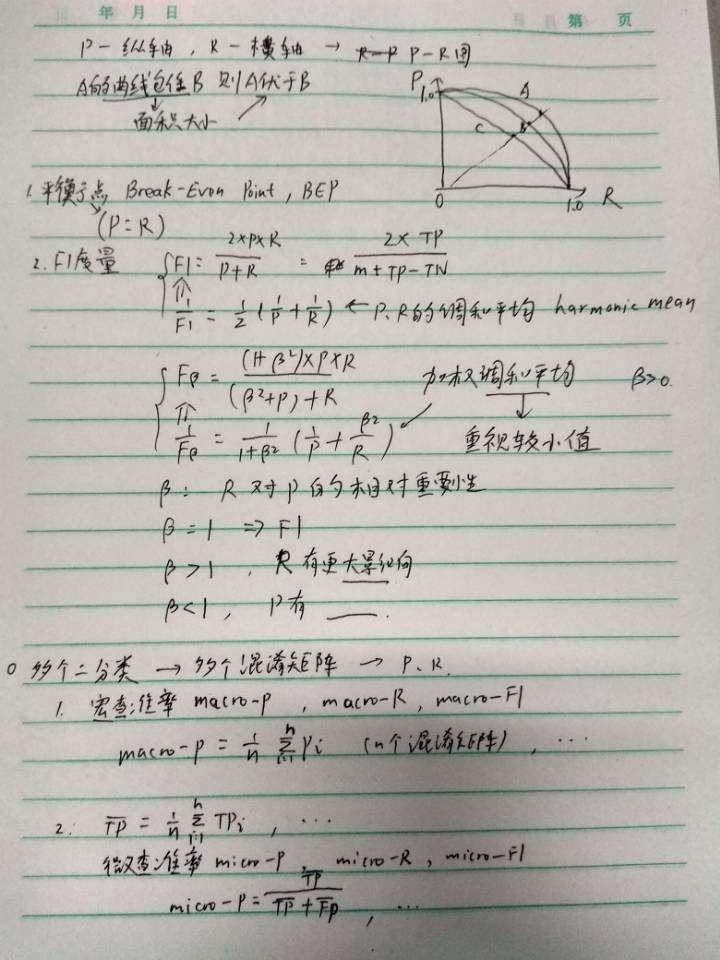 年 月 日 第 页
P-纵轴，R-横轴 → P-R图
A的曲线包住B 则A优于B
面积大小
P 1.0 A C B 0 1.0 R
1. 平衡点 Break-Even Point, BEP
(P=R)
2. F1度量 F1 = 2×P×R / P+R = 2×TP / m+TP-TN
1/F1 = 1/2 (1/P + 1/R) ← P、R的调和平均 harmonic mean
Fβ = (1+β²)×P×R / (β²+P)+R 加权调和平均 β>0.
1/Fβ = 1/1+β² (1/P + β²/R) 重视较小值
β: R对P的相对重要性
β=1 => F1
β>1, R有更大影响
β<1, P有 ___
○ 多个二分类 → 多个混淆矩阵 → P、R.
1. 宏查准率 macro-P, macro-R, macro-F1
macro-P = 1/n Σ Pi (n个混淆矩阵), ...
2. T̅P̅ = 1/n Σ TPi, ...
微查准率 micro-P, micro-R, micro-F1
micro-P = T̅P̅ / T̅P̅ + F̅P̅, ...